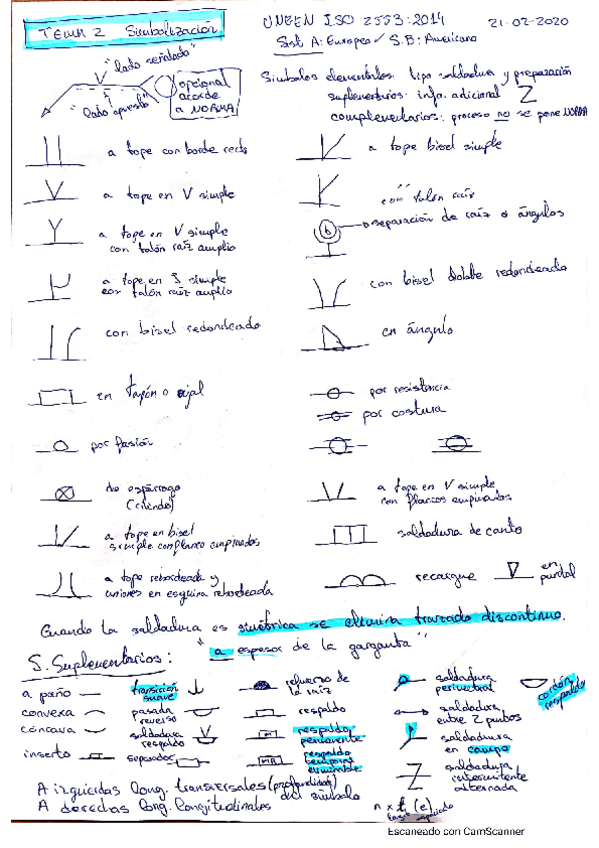 TEMA 2 Simbolización
UNE EN ISO 2553:2014
21-02-2020
Sist A: Europeo ✓ S.B: Americano
"lado señalado"
"lado opuesto"
opcional
acorde
a NORMA
Símbolos elementales: tipo soldadura y preparación
suplementarios: info. adicional
complementarios: proceso no se pone NORMA
a tope con borde recto
a tope bisel simple
a tope en V simple
con talón raíz
a tope en V simple
con talón raíz amplio
b
separación de raíz o ángulos
a tope en J simple
con talón raíz amplio
con bisel doble redondeado
con bisel redondeado
en ángulo
en tapón o ojal
por resistencia
por costura
por fusión
de espárrago
(cilindro)
a tope en V simple
con flancos empinados
a tope en bisel
simple con flanco empinados
soldadura de canto
a tope rebordeada y
uniones en esquina rebordeada
recargue
en
puntal
Cuando la soldadura es simétrica se elimina trazado discontinuo.
"a espesor de la garganta"
S. Suplementarios:
a paño
transición
suave
refuerzo de
la raíz
soldadura
perimetral
cordón
respaldo
convexa
pasada
reverso
respaldo
soldadura
entre 2 puntos
cóncava
soldadura
respaldo
M
respaldo
permanente
soldadura
en campo
inserto
separador
MR
respaldo
temporal
eliminable
soldadura
intermitente
alternada
A izquierdas long. transversales (profundidad)
del símbolo
A derechas long. longitudinales
n x l (e)
Escaneado con CamScanner